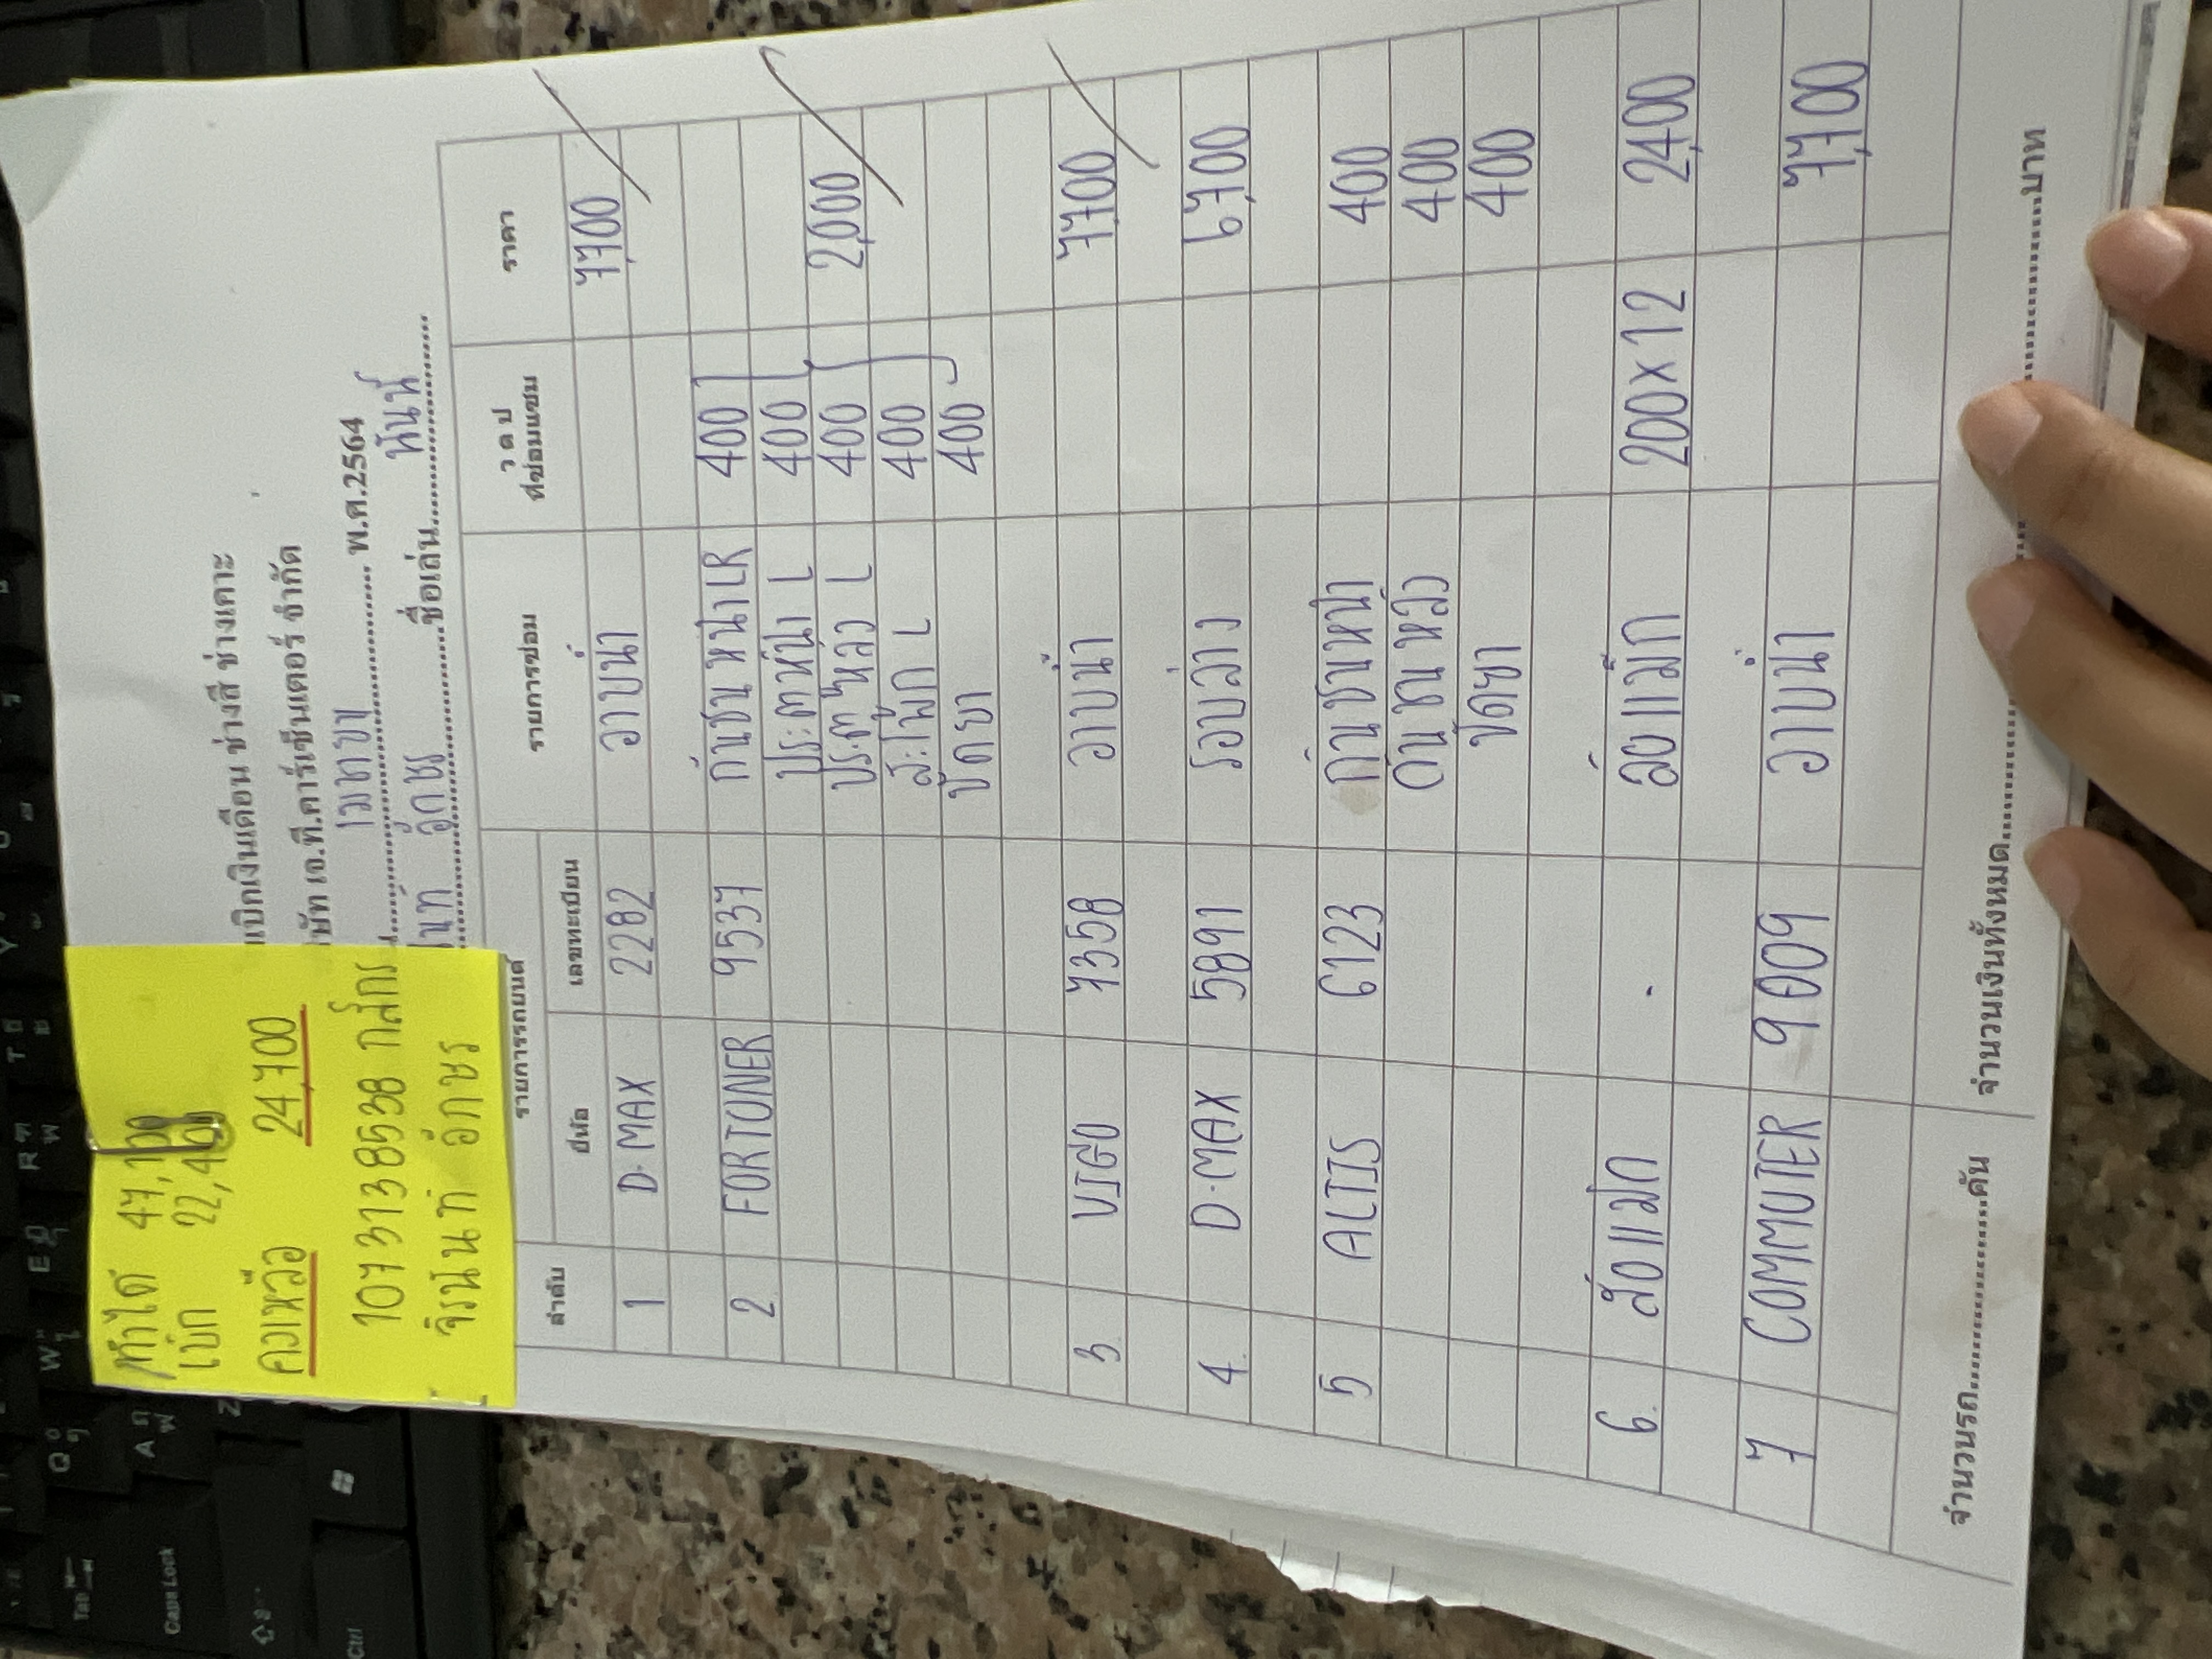 ทำได้ 47,100
เบิก 22,400
คงเหลือ 24,700
1073138538 กสิกร
จิรนันท์ อักษร
เบิกเงินเดือน ช่างสี ช่างเคาะ
บริษัท เอ.ที.คาร์เซ็นเตอร์ จำกัด
เมษายน พ.ศ.2564
อักษร ชื่อเล่น นันท์
ลำดับ รายการรถยนต์ รายการซ่อม ว ด ป ที่ซ่อมแซม ราคา
ยี่ห้อ เลขทะเบียน
1 D-MAX 2282 อาบน้ำ 7,700
2 FORTUNER 9537 กันชนหน้า LR 400
ประตูหน้า L 400
ประตูหลัง L 400 2,000
สะโพก L 400
ขัดยา 400
3. VIGO 7358 อาบน้ำ 7,700
4. D-MAX 5891 รอบล่าง 6,700
5 ALTIS 6123 กันชนหน้า 400
กันชนหลัง 400
ขัดยา 400
6. ล้อแม็ก - ล้อแม็ก 200x12 2,400
7 COMMUTER 9009 อาบน้ำ 7,700
จำนวนรถ..........คัน จำนวนเงินทั้งหมด..........บาท
Tab
Caps Lock
Ctrl
Q
W
E
R
T
Y
A
Z